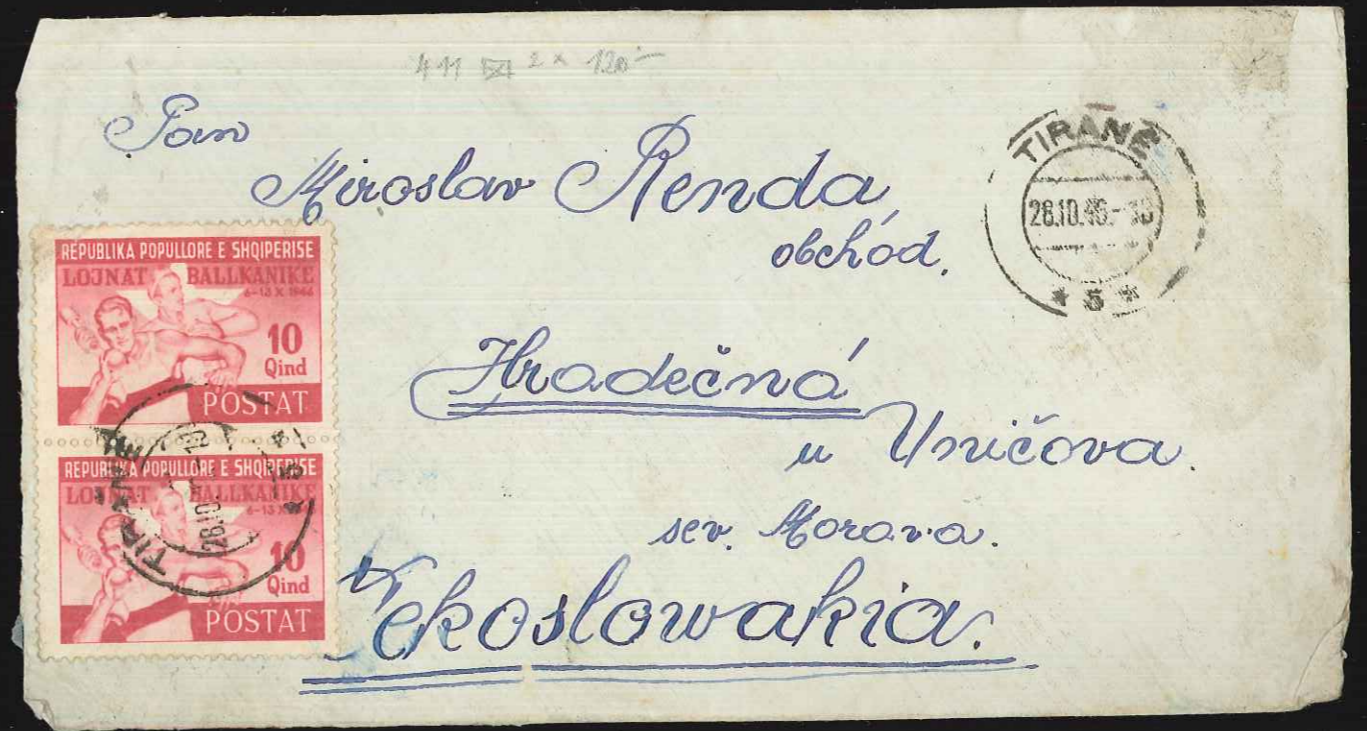 411 2x 120-
Pan
Miroslav Renda
obchód.
Hradečná
u Uničova.
sev. Morava.
Čekoslowakia.
TIRANË
28.10.46.-18
* 5 *
REPUBLIKA POPULLORE E SHQIPERISE
LOJNAT BALLKANIKE
6-13 X 1946
10
Qind
POSTAT
REPUBLIKA POPULLORE E SHQIPERISE
LOJNAT BALLKANIKE
6-13 X
10
Qind
POSTAT
TIRANË
28.10